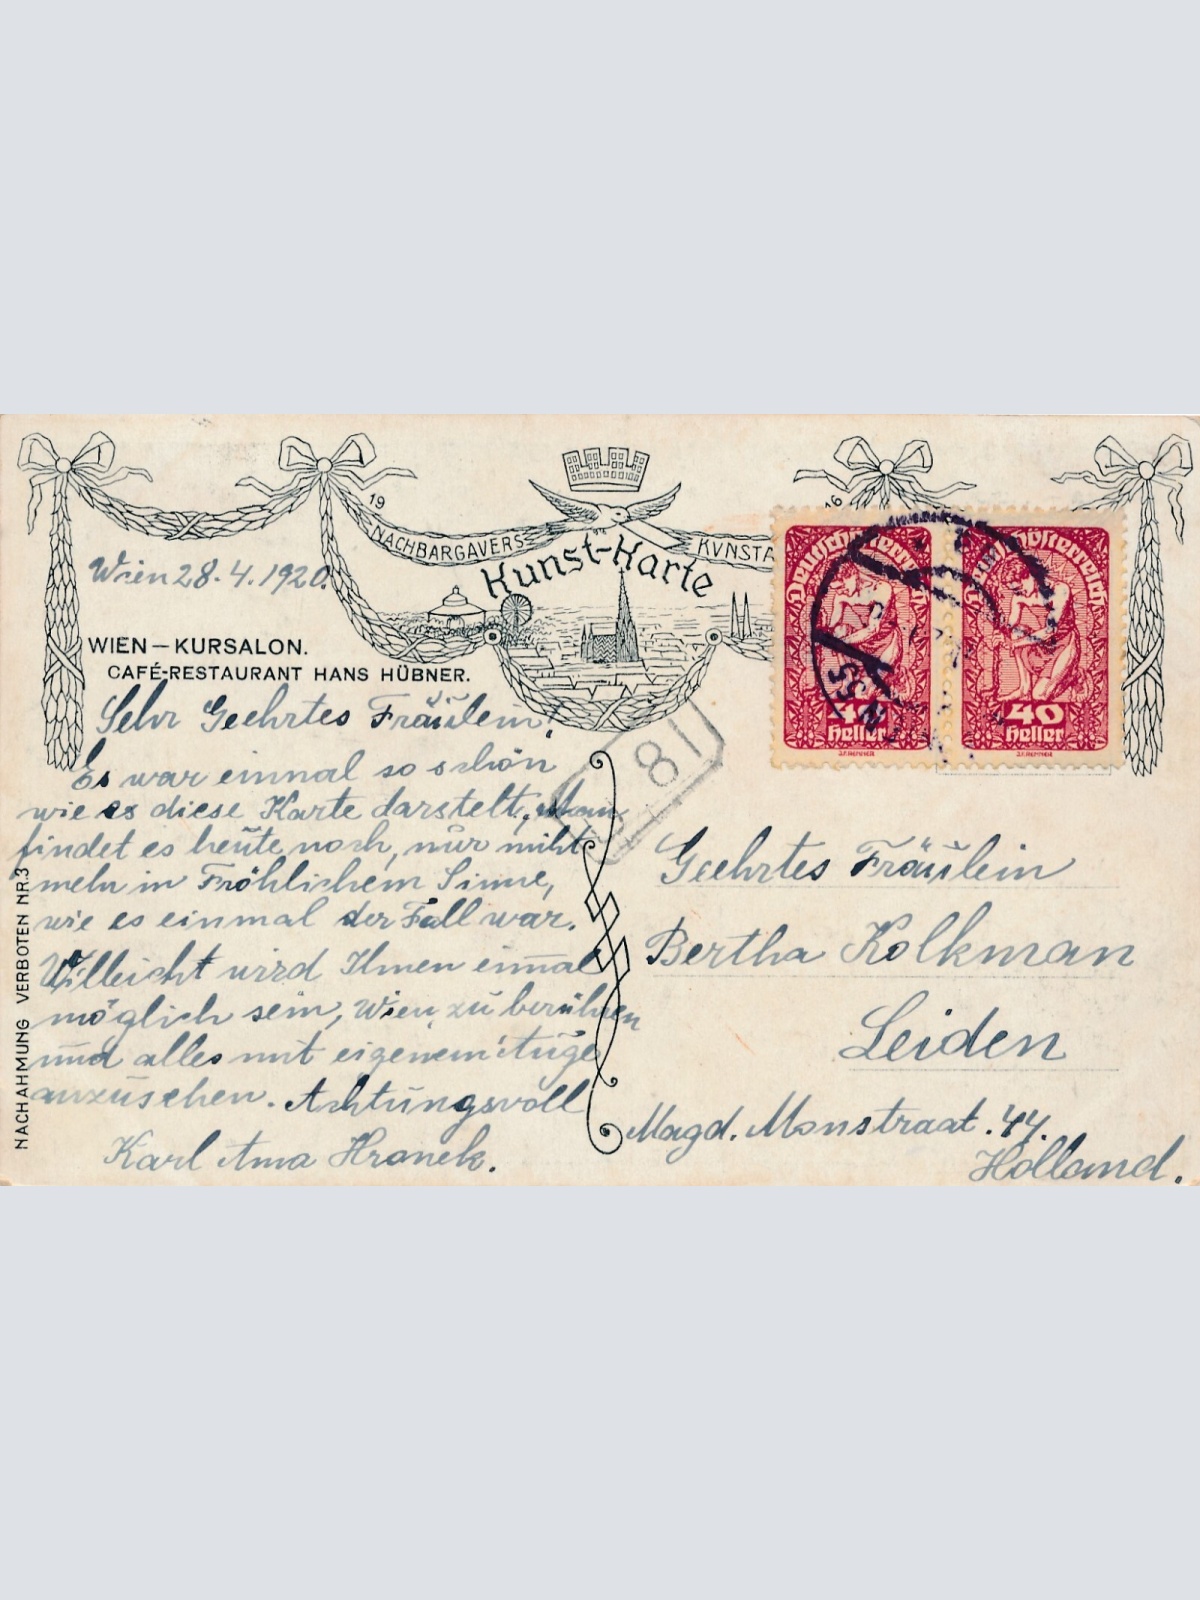 19
16
NACHBARGAVERS
KVNSTA
Kunst-Karte
Wien 28.4.1920.
WIEN — KURSALON.
CAFÉ-RESTAURANT HANS HÜBNER.
Sehr Geehrtes Fräulein!
Es war einmal so schön
wie es diese Karte darstelt, Man
findet es heute noch, nur nicht
mehr in Fröhlichem Sinne,
wie es einmal der Fall war.
Villeicht wird Ihnen einmal
möglich sein, Wien zu berühren
und alles mit eigenem Auge
anzusehen. Achtungsvoll
Karl Anna Hronek.
NACHAHMUNG VERBOTEN NR.3
Deutschösterreich
40
Heller
Deutschösterreich
40
Heller
WIEN
81
Geehrtes Fräulein
Bertha Kolkman
Leiden
Magd. Monstraat. 44.
Holland.